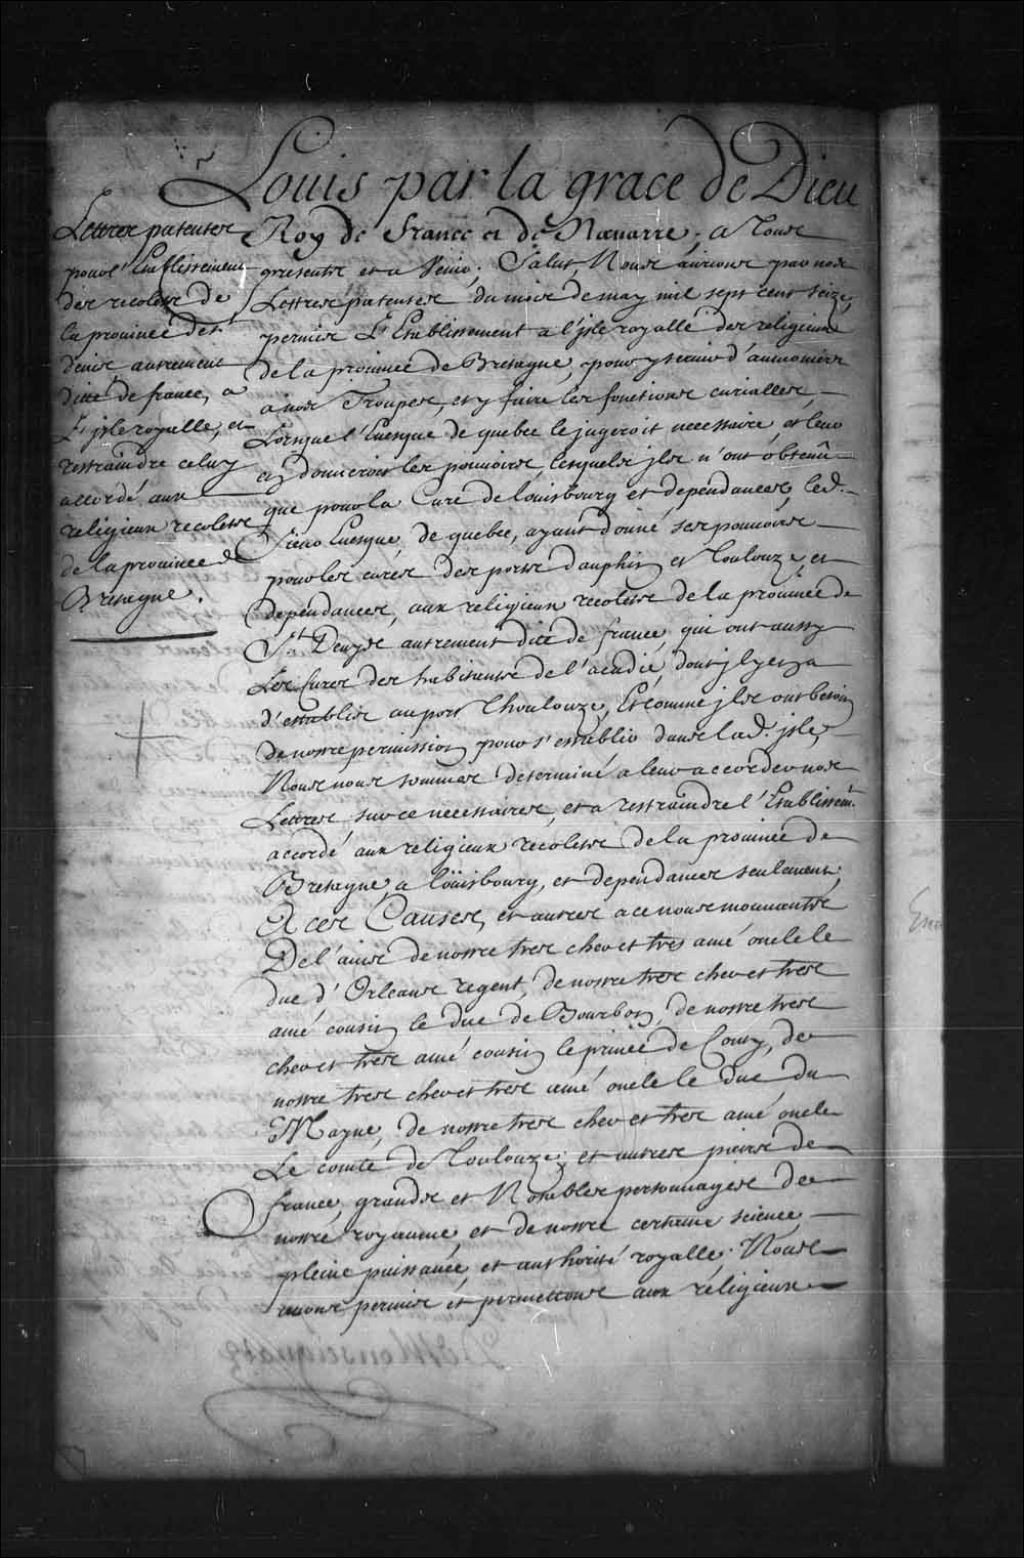 Louis par la grace de Dieu
Lettres patentes
pour l'Establissement
des recolets de
la prouince de St
Denis, autrement
ditte de france, a
L'jsle royalle, et
restraindre celuy
accordé aux
religieux recolets
de la prouince de
Bretagne.
Roy de france et de Nauarre, a Tous
presents et a venir, Salut, Nous aurions par nos
Lettres patentes du mois de may mil sept cent seize,
permis L'Establissement a l'jsle royalle des religieux
de la prouince de Bretagne, pour y seruir d'aumoniers
a nos Troupes, et y faire les fonctions curialles,
Lorsque l'Euesque de quebec le jugeroit necessaire, et leur
en donneroit les pouuoirs, lesquels jls n'ont obtenû
que pour la Cure de Louisbourg et dependances, led.
Sieur Euesque de quebec, ayant donné ses pouuoirs
pour les cures des ports dauphin et Toulouze, et
dependances, aux religieux recolets de la prouince de
St. Denys autrement dite de france, qui ont aussy
Les Cures des habitants de l'acadie, dont jl y en a
d'establis au port Thoulouze, Et comme jls ont besoin
de nostre permission pour s'establir dans lad. jsle,
Nous nous sommes determiné a leur accorder nos
Lettres sur ce necessaires, et a restraindre l'Establissem.
accordé aux religieux recolets de la prouince de
Bretagne, a Loüisbourg, et dependances seulement,
A ces Causes, et autres a ce nous mouuants
De l'auis de nostre tres cher et tres amé oncle le
duc d'Orleans regent, de nostre tres cher et tres
amé cousin le duc de Bourbon, de nostre tres
cher et tres amé cousin le prince de Conty, de
nostre tres cher et tres amé oncle le duc du
Mayne, de nostre tres cher et tres amé oncle
Le comte de Toulouze, et autres pairs de
france, grands et Notables personnages de
nostre royaume, et de nostre certaine science,
pleine puissance, et authorité royalle. Nous
auons permis et permettons aux réligieux